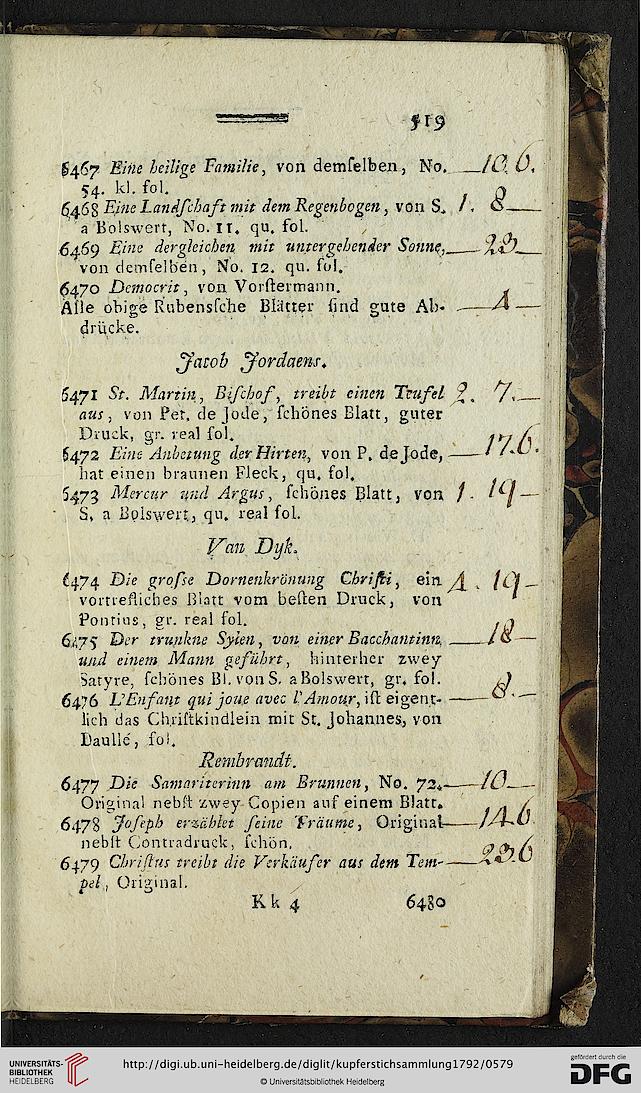 519
6467 Eine heilige Familie, von demſelben, No. — 10. 6.
54. kl. fol.
6468 Eine Landſchaft mit dem Regenbogen, von S. 1. 8 —
a Bolswert, No. 11. qu. fol.
6469 Eine dergleichen mit untergehender Sonne, — 23 —
von demſelben, No. 12. qu. fol.
6470 Democrit, von Vorſtermann.
Alle obige Rubensſche Blätter ſind gute Ab- — 4 —
drücke.
Jacob Jordaens.
6471 St. Martin, Biſchof, treibt einen Teufel 2. 7. —
aus, von Pet. de Jode, ſchönes Blatt, guter
Druck, gr. real fol.
6472 Eine Anbetung der Hirten, von P. de Jode, — 17. 6.
hat einen braunen Fleck, qu. fol.
6473 Mercur und Argus, ſchönes Blatt, von 1. 19 —
S. a Bolswert, qu. real fol.
Van Dyk.
6474 Die groſse Dornenkrönung Chriſti, ein 4. 19 —
vortrefliches Blatt vom beſten Druck, von
Pontius, gr. real fol.
6475 Der trunkne Sylen, von einer Bacchantinn, — 18 —
und einem Mann geführt, hinterher zwey
Satyre, ſchönes Bl. von S. a Bolswert, gr. fol.
6476 L'Enfant qui joue avec l'Amour, iſt eigent- — 8. —
lich das Chriſtkindlein mit St. Johannes, von
Daullé, fol.
Rembrandt.
6477 Die Samariterinn am Brunnen, No. 72. — 10 —
Original nebſt zwey Copien auf einem Blatt.
6478 Joſeph erzählet ſeine Träume, Original — 14. 6
nebſt Contradruck, ſchön.
6479 Chriſtus treibt die Verkäufer aus dem Tem- — 23. 6
pel, Original.
K k 4 6480
UNIVERSITÄTS-
BIBLIOTHEK
HEIDELBERG
http://digi.ub.uni-heidelberg.de/diglit/kupferstichsammlung1792/0579
© Universitätsbibliothek Heidelberg
gefördert durch die
DFG